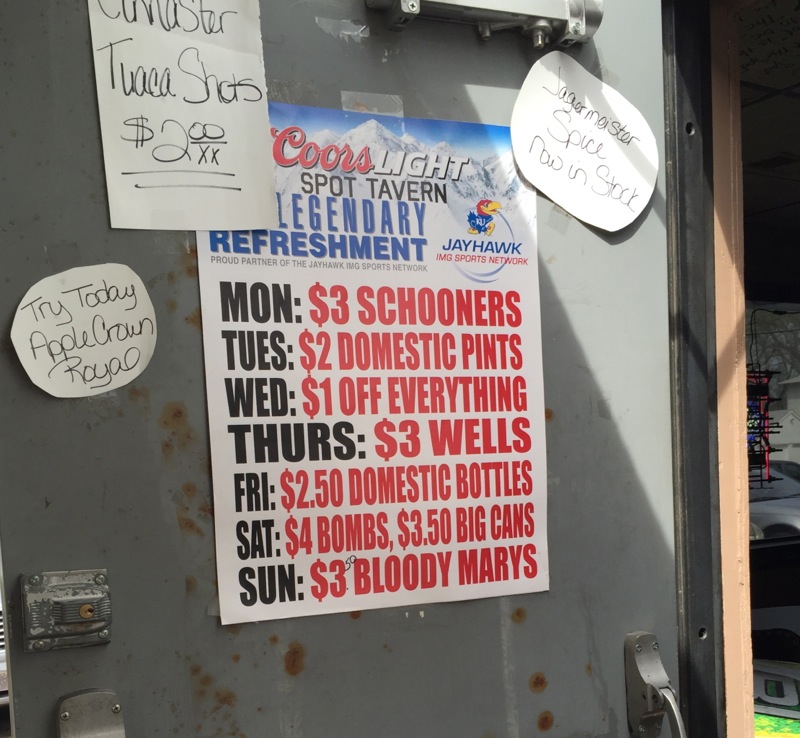 Tuaca Shots
$2.00/xx
Coors LIGHT
SPOT TAVERN
LEGENDARY
REFRESHMENT
PROUD PARTNER OF THE JAYHAWK IMG SPORTS NETWORK
KU
JAYHAWK
IMG SPORTS NETWORK
Jagermeister
Spice
now in Stock
Try Today
Apple Crown
Royal
MON: $3 SCHOONERS
TUES: $2 DOMESTIC PINTS
WED: $1 OFF EVERYTHING
THURS: $3 WELLS
FRI: $2.50 DOMESTIC BOTTLES
SAT: $4 BOMBS, $3.50 BIG CANS
SUN: $3.50 BLOODY MARYS